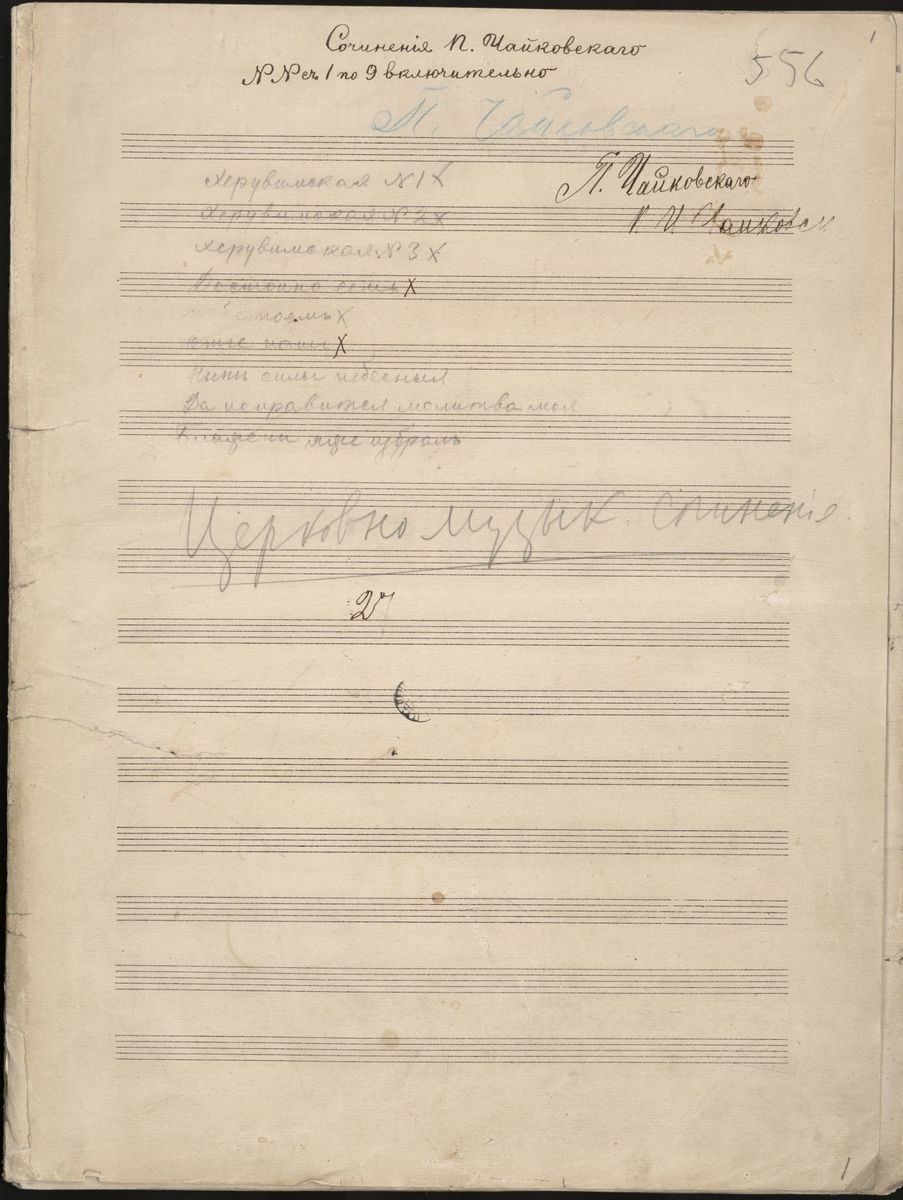 1
Сочиненія П. Чайковскаго
N N съ 1 по 9 включительно
556
П. Чайковскаго
П. Чайковскаго
Херувимская N 1 X
П И Чайковск
Херувимская N 2 X
Херувимская N 3 X
Достойно есть X
тебе поемъ X
отче нашъ X
Нынѣ силы небесныя
Да исправится молитва моя
Блажени яже избралъ
Церковно музык. Сочиненія
2
1